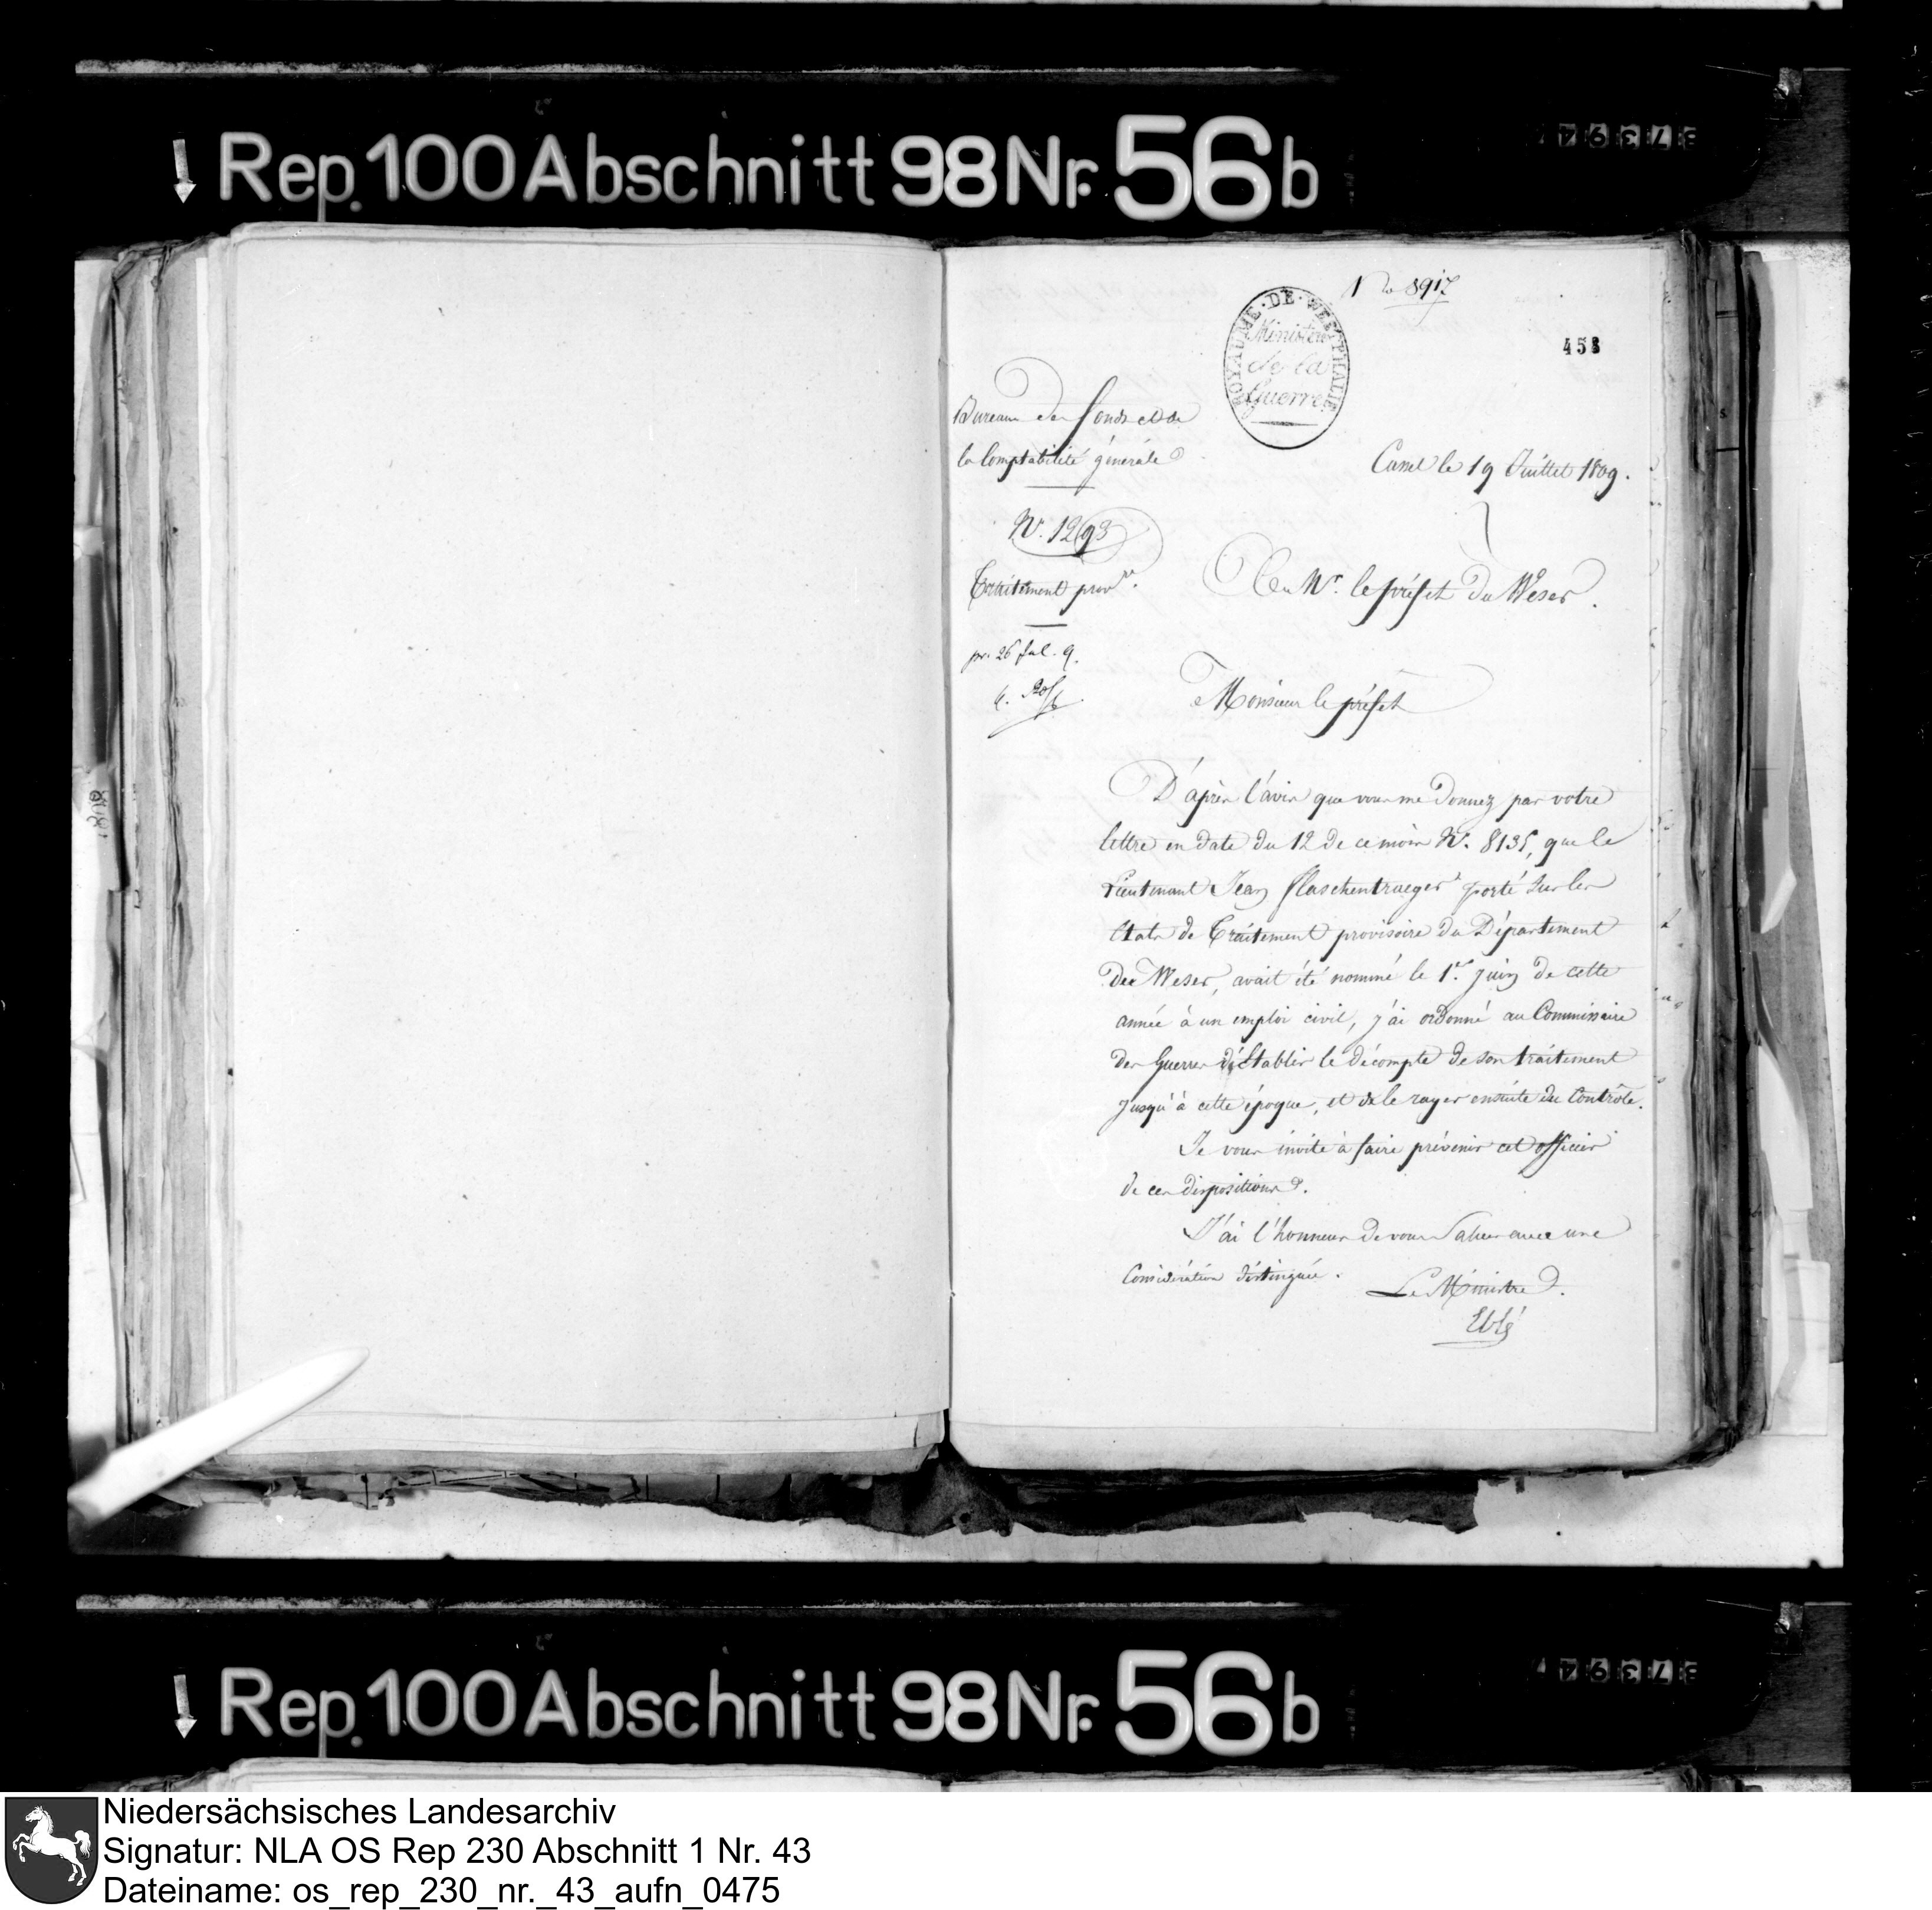 Rep. 100 Abschnitt 98 Nr. 56 b
No 8917
ROYAUME·DE·WESTPHALIE
Ministère
de la
Guerre
458
Bureau des fonds et de
la Comptabilité générale
Cassel le 19 Juillet 1809.
N°. 1293
Traitement prov.re
A M.r le préfet du Weser.
pr. 26 Jul. 9.
Monsieur le préfet
D'après l'avis que vous me donnez par votre
lettre en date du 12 de ce mois N°. 8135, que le
Lieutenant Jean Flaschentraeger porté sur les
Etats de Traitement provisoire du Département
du Weser, avait été nommé le 1.er Juin de cette
année à un emploi civil, j'ai ordonné au Commissaire
des Guerres d'Etablir le décompte de son traitement
jusqu'à cette époque, et de le rayer ensuite du Contrôle.
Je vous invite à faire prévenir cet officier
de ces dispositions.
J'ai l'honneur de vous saluer avec une
Considération distinguée.
Le Ministre.
Eblé
1808
Rep. 100 Abschnitt 98 Nr. 56 b
Niedersächsisches Landesarchiv
Signatur: NLA OS Rep 230 Abschnitt 1 Nr. 43
Dateiname: os_rep_230_nr._43_aufn_0475